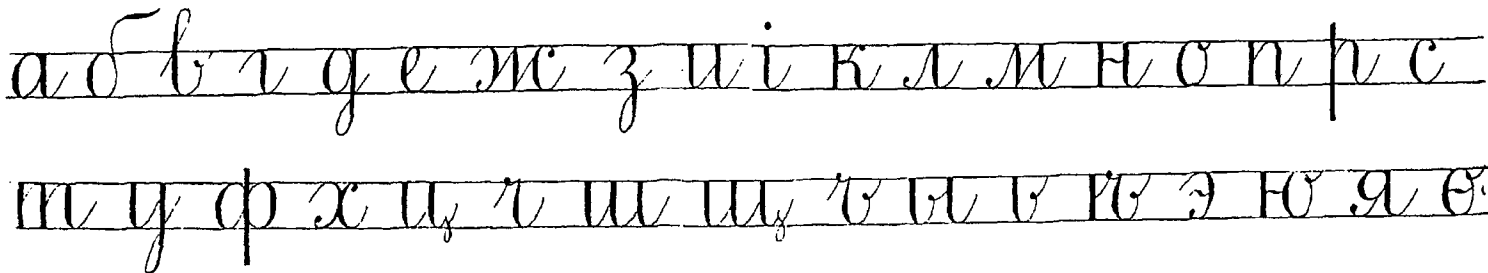 а б в г д е ж з и і к л м н о п р с
т у ф х ц ч ш щ ъ ы ь ѣ э ю я ѳ